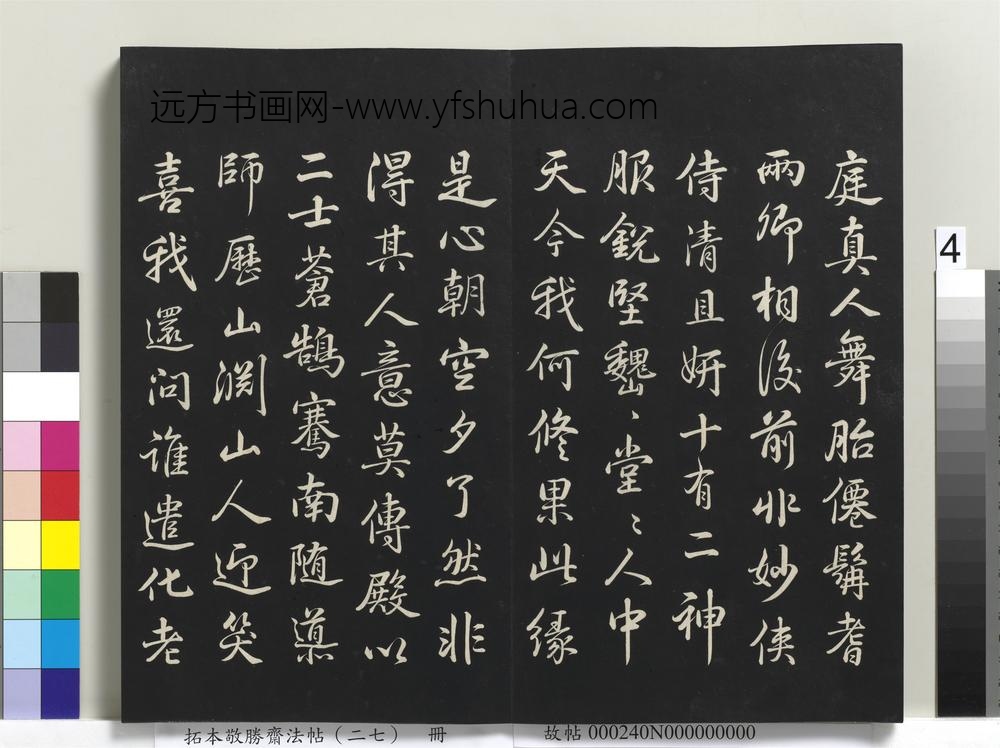 远方书画网-www.yfshuhua.com
庭真人舞胎僊髯耆
兩卿相後前非妙俠
侍清且妍十有二神
服銳堅巍〻堂〻人中
天今我何修果此緣
是心朝空夕了然非
得其人意莫傳殿以
二士蒼鵠騫南随道
師歷山渊山人迎笑
喜我還问誰遣化老
4
拓本敬勝齋法帖（二七） 冊
故帖 000240N000000000